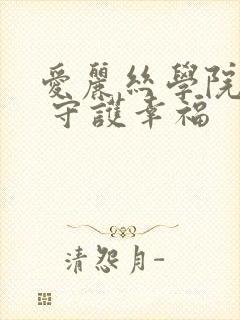 愛麗絲學院
守護幸福
清怨月-